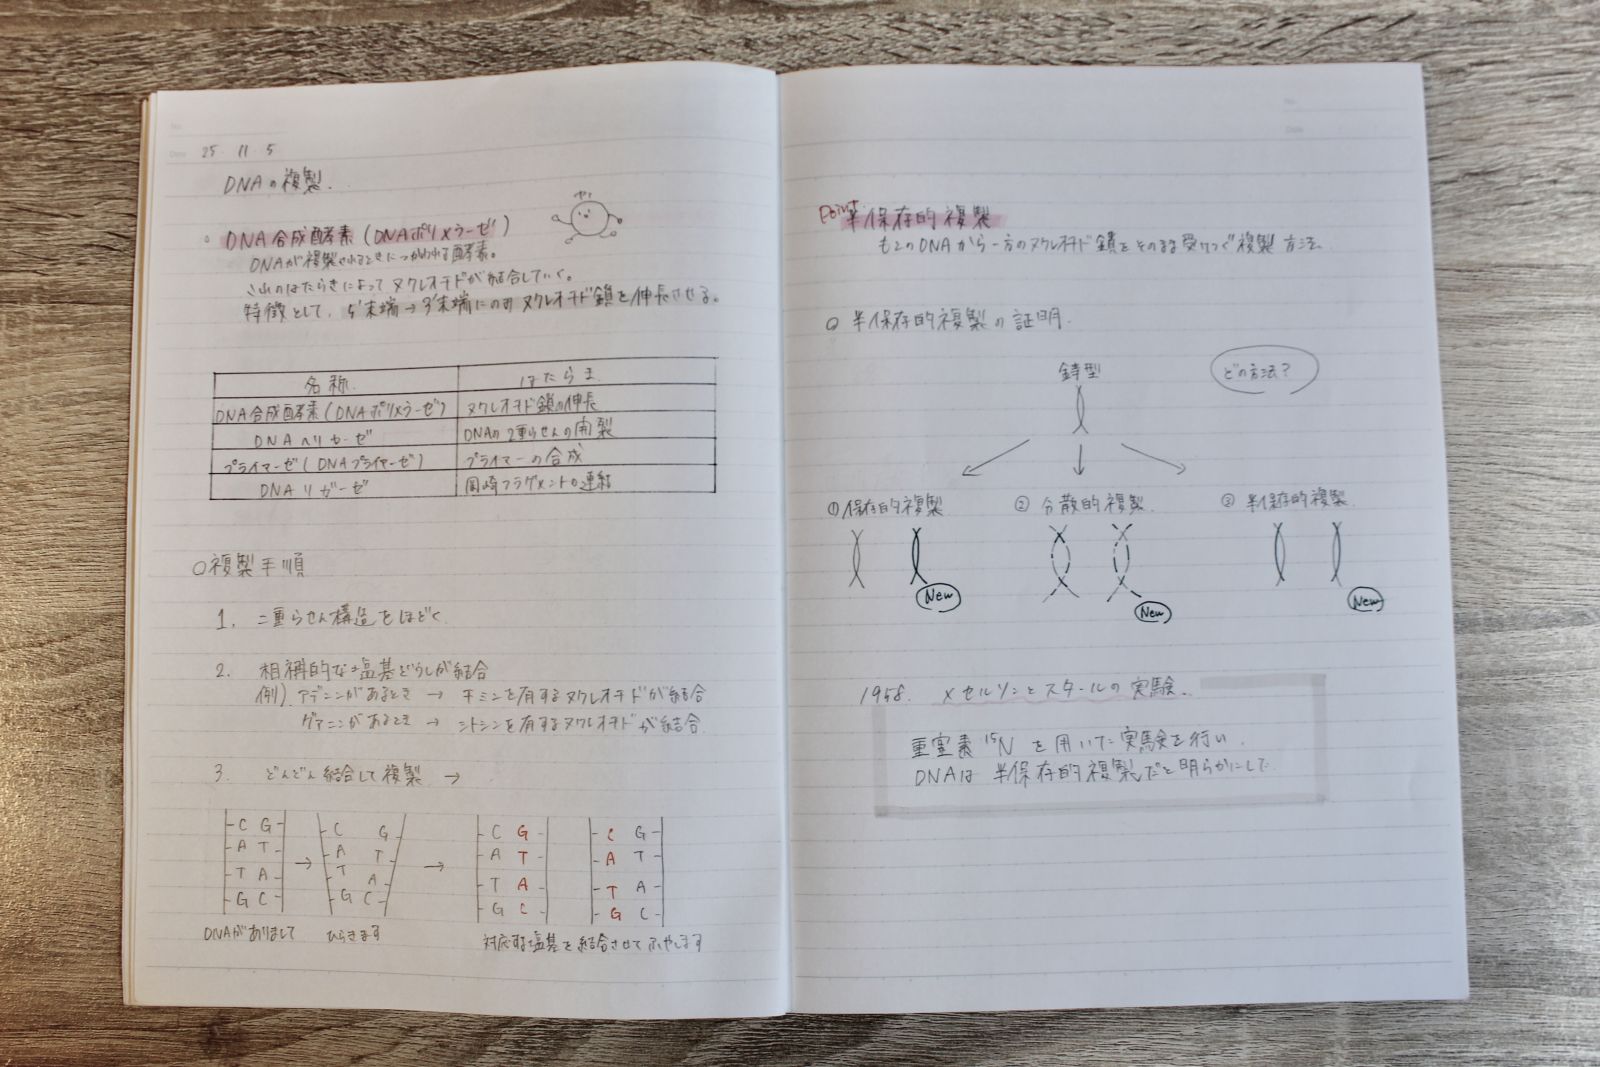 No.
Date 25・11・5
DNAの複製.
。DNA合成酵素(DNAポリメラーゼ)
DNAが複製されるときにつかわれる酵素。
これのはたらきによってヌクレオチドが結合していく。
特徴として、5'末端→3'末端にのみヌクレオチド鎖を伸長させる。
名称. はたらき
DNA合成酵素(DNAポリメラーゼ) ヌクレオチド鎖の伸長
DNAヘリカーゼ DNAの2重らせんの開裂
プライマーゼ(DNAプライマーゼ) プライマーの合成
DNAリガーゼ 岡崎フラグメントの連結
○複製手順
1. 二重らせん構造をほどく
2. 相補的な塩基どうしが結合
例). アデニンがあるとき → チミンを有するヌクレオチドが結合
グアニンがあるとき → シトシンを有するヌクレオチドが結合.
3. どんどん結合して複製 →
C G C G C G C G
A T A T A T A T
T A T A T A T A
G C G C G C G C
DNAがありまして ひらきます 対応する塩基を結合させてふやします
No.
Date
Point 半保存的複製
もとのDNAから一方のヌクレオチド鎖をそのまま受けつぐ複製方法.
○ 半保存的複製の証明.
鋳型 どの方法?
①保存的複製 ② 分散的複製. ③ 半保存的複製.
New New New
1958. メセルソンとスタールの実験.
重窒素 ¹⁵N を用いた実験を行い、
DNAは半保存的複製だと明らかにした.